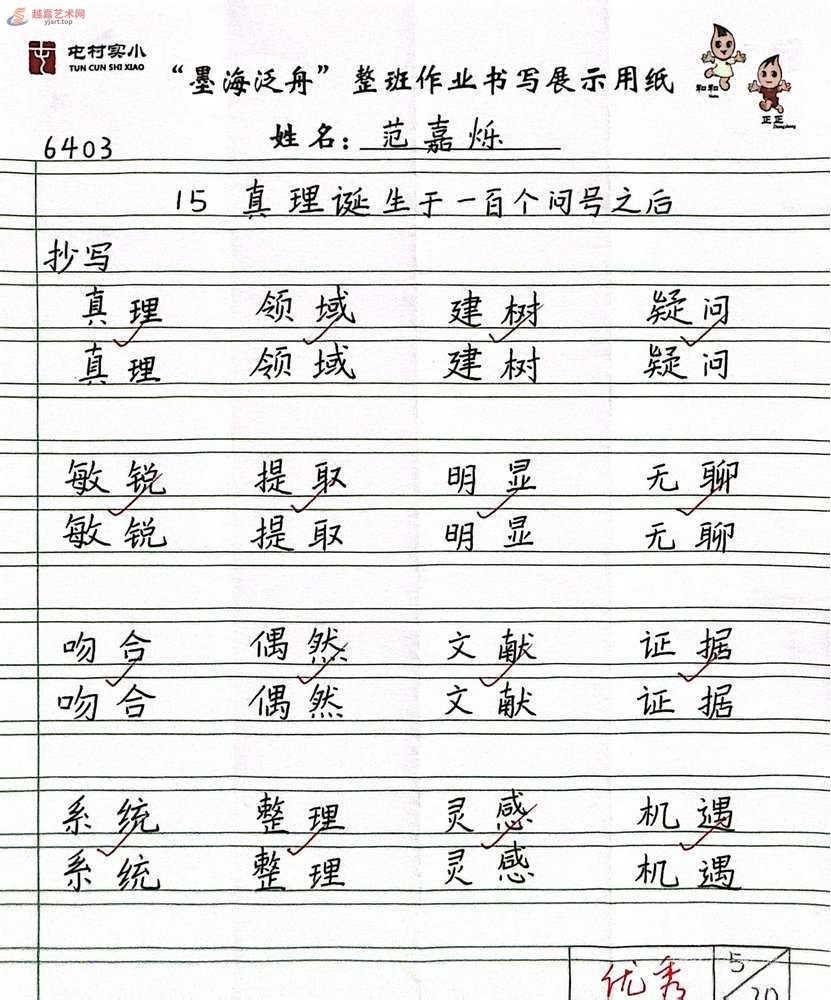 越嘉艺术网
yjart.top
屯村实小
TUN CUN SHI XIAO
“墨海泛舟”整班作业书写展示用纸
和和
正正
6403
姓名：范嘉烁
15 真理诞生于一百个问号之后
抄写
真理 领域 建树 疑问
真理 领域 建树 疑问
敏锐 提取 明显 无聊
敏锐 提取 明显 无聊
吻合 偶然 文献 证据
吻合 偶然 文献 证据
系统 整理 灵感 机遇
系统 整理 灵感 机遇
优秀 5/20